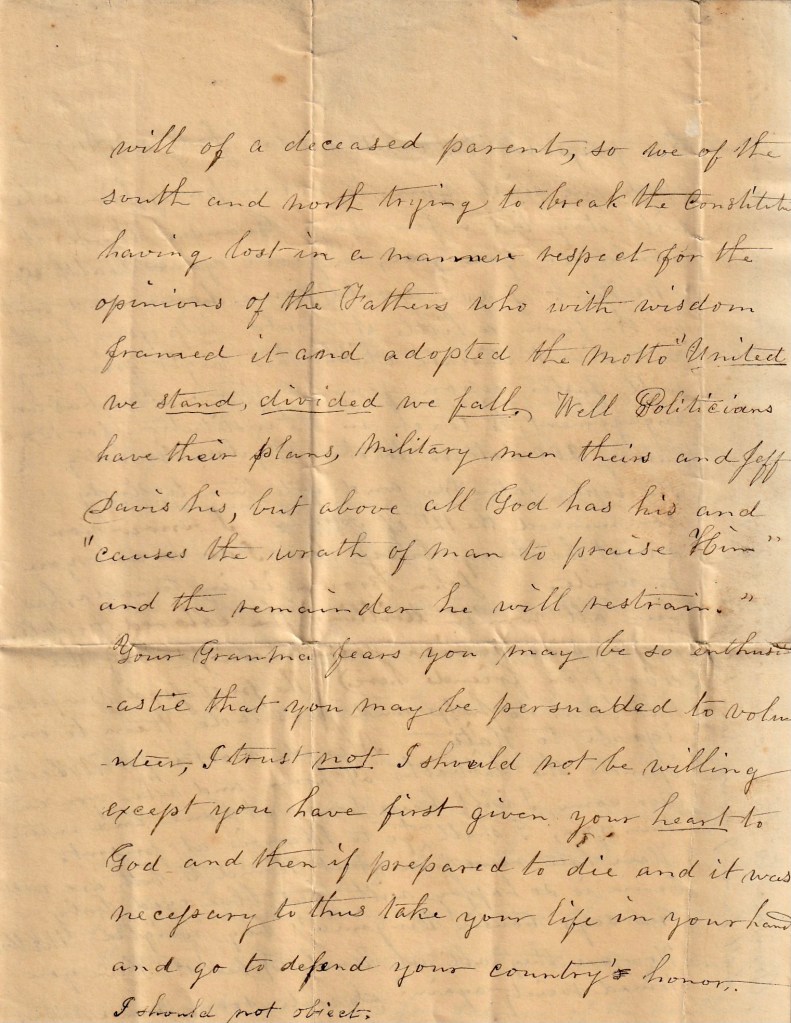 will of a deceased parent, so we of the
south and north trying to break the Constitut
having lost in a manner respect for the
opinions of the Fathers who with wisdom
framed it and adopted the motto "United
we stand, divided we fall. Well Politicians
have their plans, Military men theirs and Jeff
Davis his, but above all God has his and
"causes the wrath of man to praise Him"
and the remainder he will restrain."
Your Grandma fears you may be so enthusi
-astic that you may be persuaded to volu
-nteer, I trust not. I should not be willing
except you have first given your heart to
God and then if prepared to die and it was
necessary to thus take your life in your hand
and go to defend your country's honor.
I should not object.